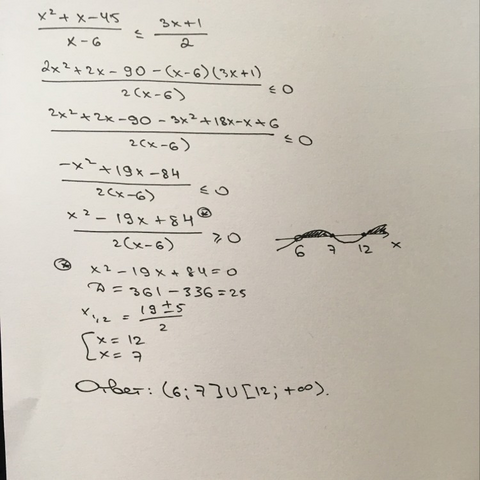 (x² + x - 45)/(x - 6) ≤ (3x + 1)/2
(2x² + 2x - 90 - (x - 6)(3x + 1))/(2(x - 6)) ≤ 0
(2x² + 2x - 90 - 3x² + 18x - x + 6)/(2(x - 6)) ≤ 0
(-x² + 19x - 84)/(2(x - 6)) ≤ 0
(x² - 19x + 84 ⊛)/(2(x - 6)) ≥ 0
6 7 12 x
⊛ x² - 19x + 84 = 0
D = 361 - 336 = 25
x₁/₂ = (19 ± 5)/2
[x = 12
[x = 7
Ответ: (6; 7] ∪ [12; +∞).